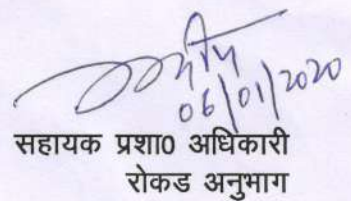 06/01/2020
सहायक प्रशा0 अधिकारी
रोकड अनुभाग